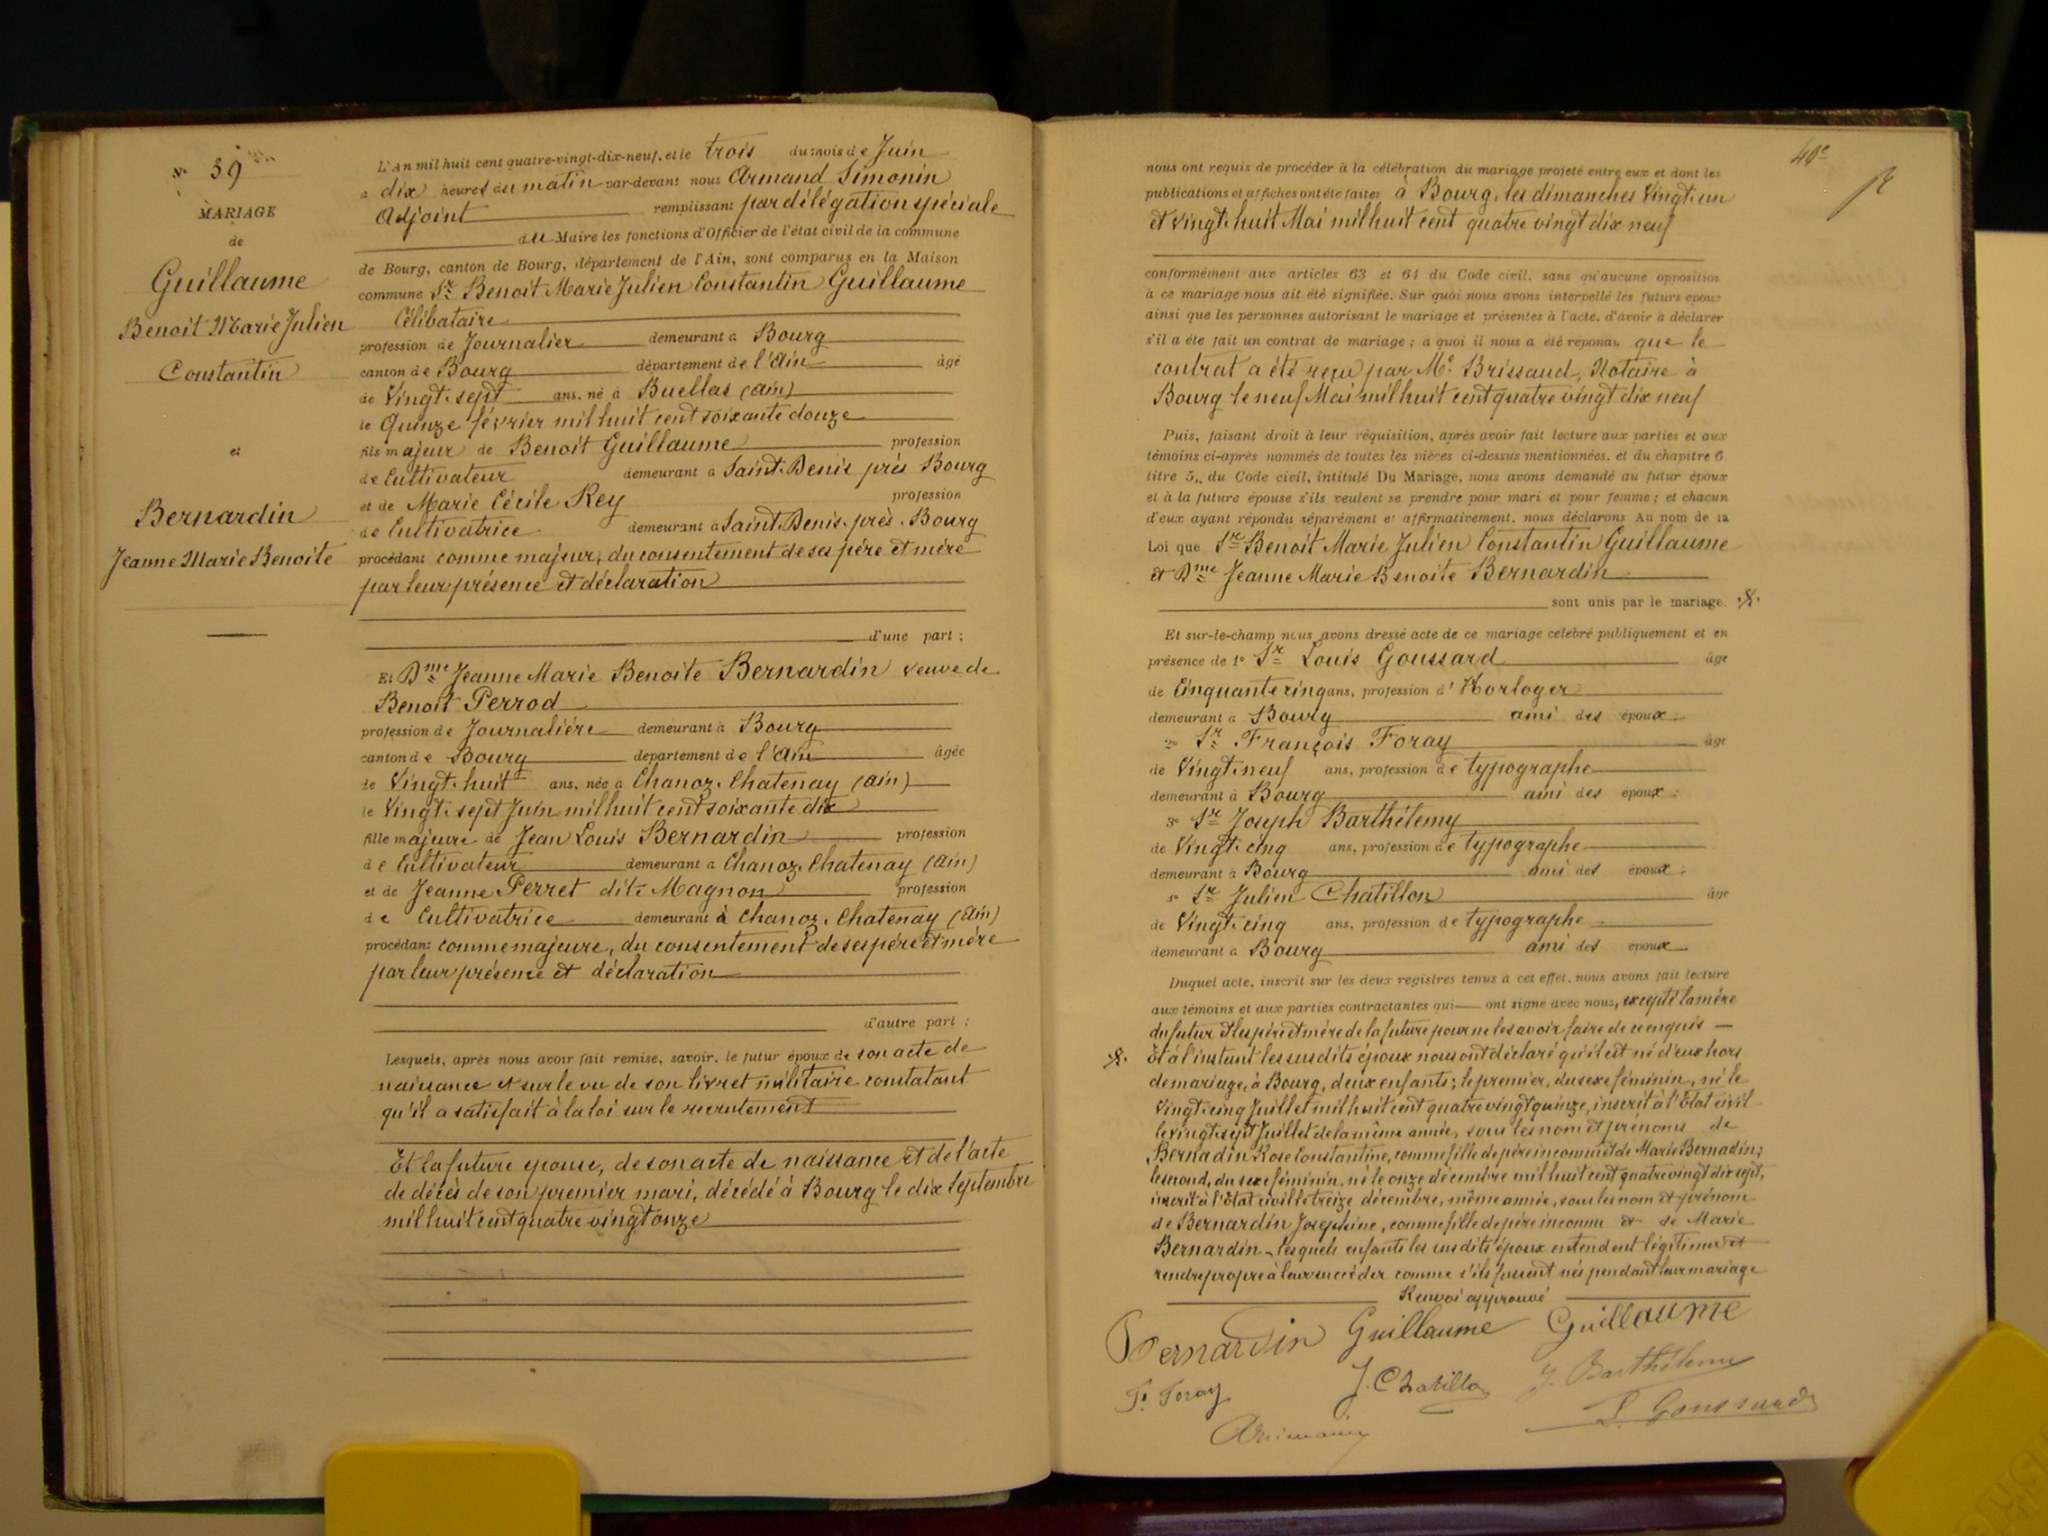 N° 39
MARIAGE
de
Guillaume
Benoit Marie Julien
Constantin
et
Bernardin
Jeanne Marie Benoite
L'An mil huit cent quatre-vingt-dix-neuf, et le trois du mois de Juin
à dix heures du matin par-devant nous Armand Simonin
Adjoint remplissant par délégation spéciale
du Maire les fonctions d'Officier de l'état civil de la commune
de Bourg, canton de Bourg, département de l'Ain, sont comparus en la Maison
commune Sr Benoit Marie Julien Constantin Guillaume
Célibataire
profession de Journalier demeurant à Bourg
canton de Bourg département de l'Ain âgé
de Vingt-sept ans, né à Buellas (Ain)
le Quinze février mil huit cent soixante douze
fils majeur de Benoit Guillaume profession
de Cultivateur demeurant à Saint-Denis près Bourg
et de Marie Cécile Rey profession
de Cultivatrice demeurant à Saint-Denis-près-Bourg
procédant comme majeur, du consentement de ses père et mère
par leur présence et déclaration
d'une part ;
Et Dme Jeanne Marie Benoite Bernardin veuve de
Benoit Perrod
profession de Journalière demeurant à Bourg
canton de Bourg département de l'Ain âgée
de Vingt-huit ans, née à Chanoz-Chatenay (Ain)
le Vingt-sept Juin mil huit cent soixante dix
fille majeure de Jean Louis Bernardin profession
de Cultivateur demeurant à Chanoz-Chatenay (Ain)
et de Jeanne Perret dite Magnon profession
de Cultivatrice demeurant à Chanoz-Chatenay (Ain)
procédant comme majeure, du consentement de ses père et mère
par leur présence et déclaration
d'autre part ;
Lesquels, après nous avoir fait remise, savoir, le futur époux de son acte de
naissance et sur le vu de son livret militaire constatant
qu'il a satisfait à la loi sur le recrutement
Et la future épouse, de son acte de naissance et de l'acte
de décès de son premier mari, décédé à Bourg le dix Septembre
mil huit cent quatre vingt onze
40e
nous ont requis de procéder à la célébration du mariage projeté entre eux et dont les
publications et affiches ont été faites à Bourg, les dimanches Vingt-un
et Vingt-huit Mai mil huit cent quatre vingt dix neuf
conformément aux articles 63 et 64 du Code civil, sans qu'aucune opposition
à ce mariage nous ait été signifiée. Sur quoi nous avons interpellé les futurs époux
ainsi que les personnes autorisant le mariage et présentes à l'acte, d'avoir à déclarer
s'il a été fait un contrat de mariage ; à quoi il nous a été répondu que le
contrat a été reçu par Me Brissaud, Notaire à
Bourg le neuf Mai mil huit cent quatre vingt dix neuf
Puis, faisant droit à leur réquisition, après avoir fait lecture aux parties et aux
témoins ci-après nommés de toutes les pièces ci-dessus mentionnées, et du chapitre 6
titre 5, du Code civil, intitulé Du Mariage, nous avons demandé au futur époux
et à la future épouse s'ils veulent se prendre pour mari et pour femme ; et chacun
d'eux ayant répondu séparément et affirmativement, nous déclarons Au nom de la
Loi que Sr Benoit Marie Julien Constantin Guillaume
et Dme Jeanne Marie Benoite Bernardin
sont unis par le mariage.
Et sur-le-champ nous avons dressé acte de ce mariage célébré publiquement et en
présence de 1° Sr Louis Goussard âgé
de Cinquante cinq ans, profession d'Horloger
demeurant à Bourg ami des époux ;
2° Sr François Foray âgé
de Vingt-neuf ans, profession de typographe
demeurant à Bourg ami des époux ;
3° Sr Joseph Barthélemy
de Vingt-cinq ans, profession de typographe
demeurant à Bourg ami des époux ;
Sr Julien Chatillon âgé
de Vingt-cinq ans, profession de typographe
demeurant à Bourg ami des époux
Duquel acte, inscrit sur les deux registres tenus à cet effet, nous avons fait lecture
aux témoins et aux parties contractantes qui ont signé avec nous, excepté la mère
du futur et les père et mère de la future pour ne les avoir faire de ce enquis
Et à l'instant les susdits époux nous ont déclaré qu'il est né d'eux hors
de mariage, à Bourg, deux enfants ; le premier, du sexe féminin, né le
Vingt-cinq Juillet mil huit cent quatre vingt quinze, inscrit à l'Etat civil
le vingt-sept Juillet de la même année, sous les nom et prénoms de
Bernadin Rose Constantine, comme fille de père inconnu et de Marie Bernadin ;
le second, du sexe féminin, né le onze décembre mil huit cent quatre vingt dix sept,
inscrit à l'Etat civil le treize décembre, même année, sous les nom et prénom
de Bernardin Joséphine, comme fille de père inconnu et de Marie
Bernardin - lesquels enfants les susdits époux entendent légitimer et
rendre propre à leur succéder comme s'ils fussent nés pendant leur mariage
Renvoi approuvé
Bernardin Guillaume Guillaume
F. Foray J. Chatillon J. Barthélemy
L. Goussard